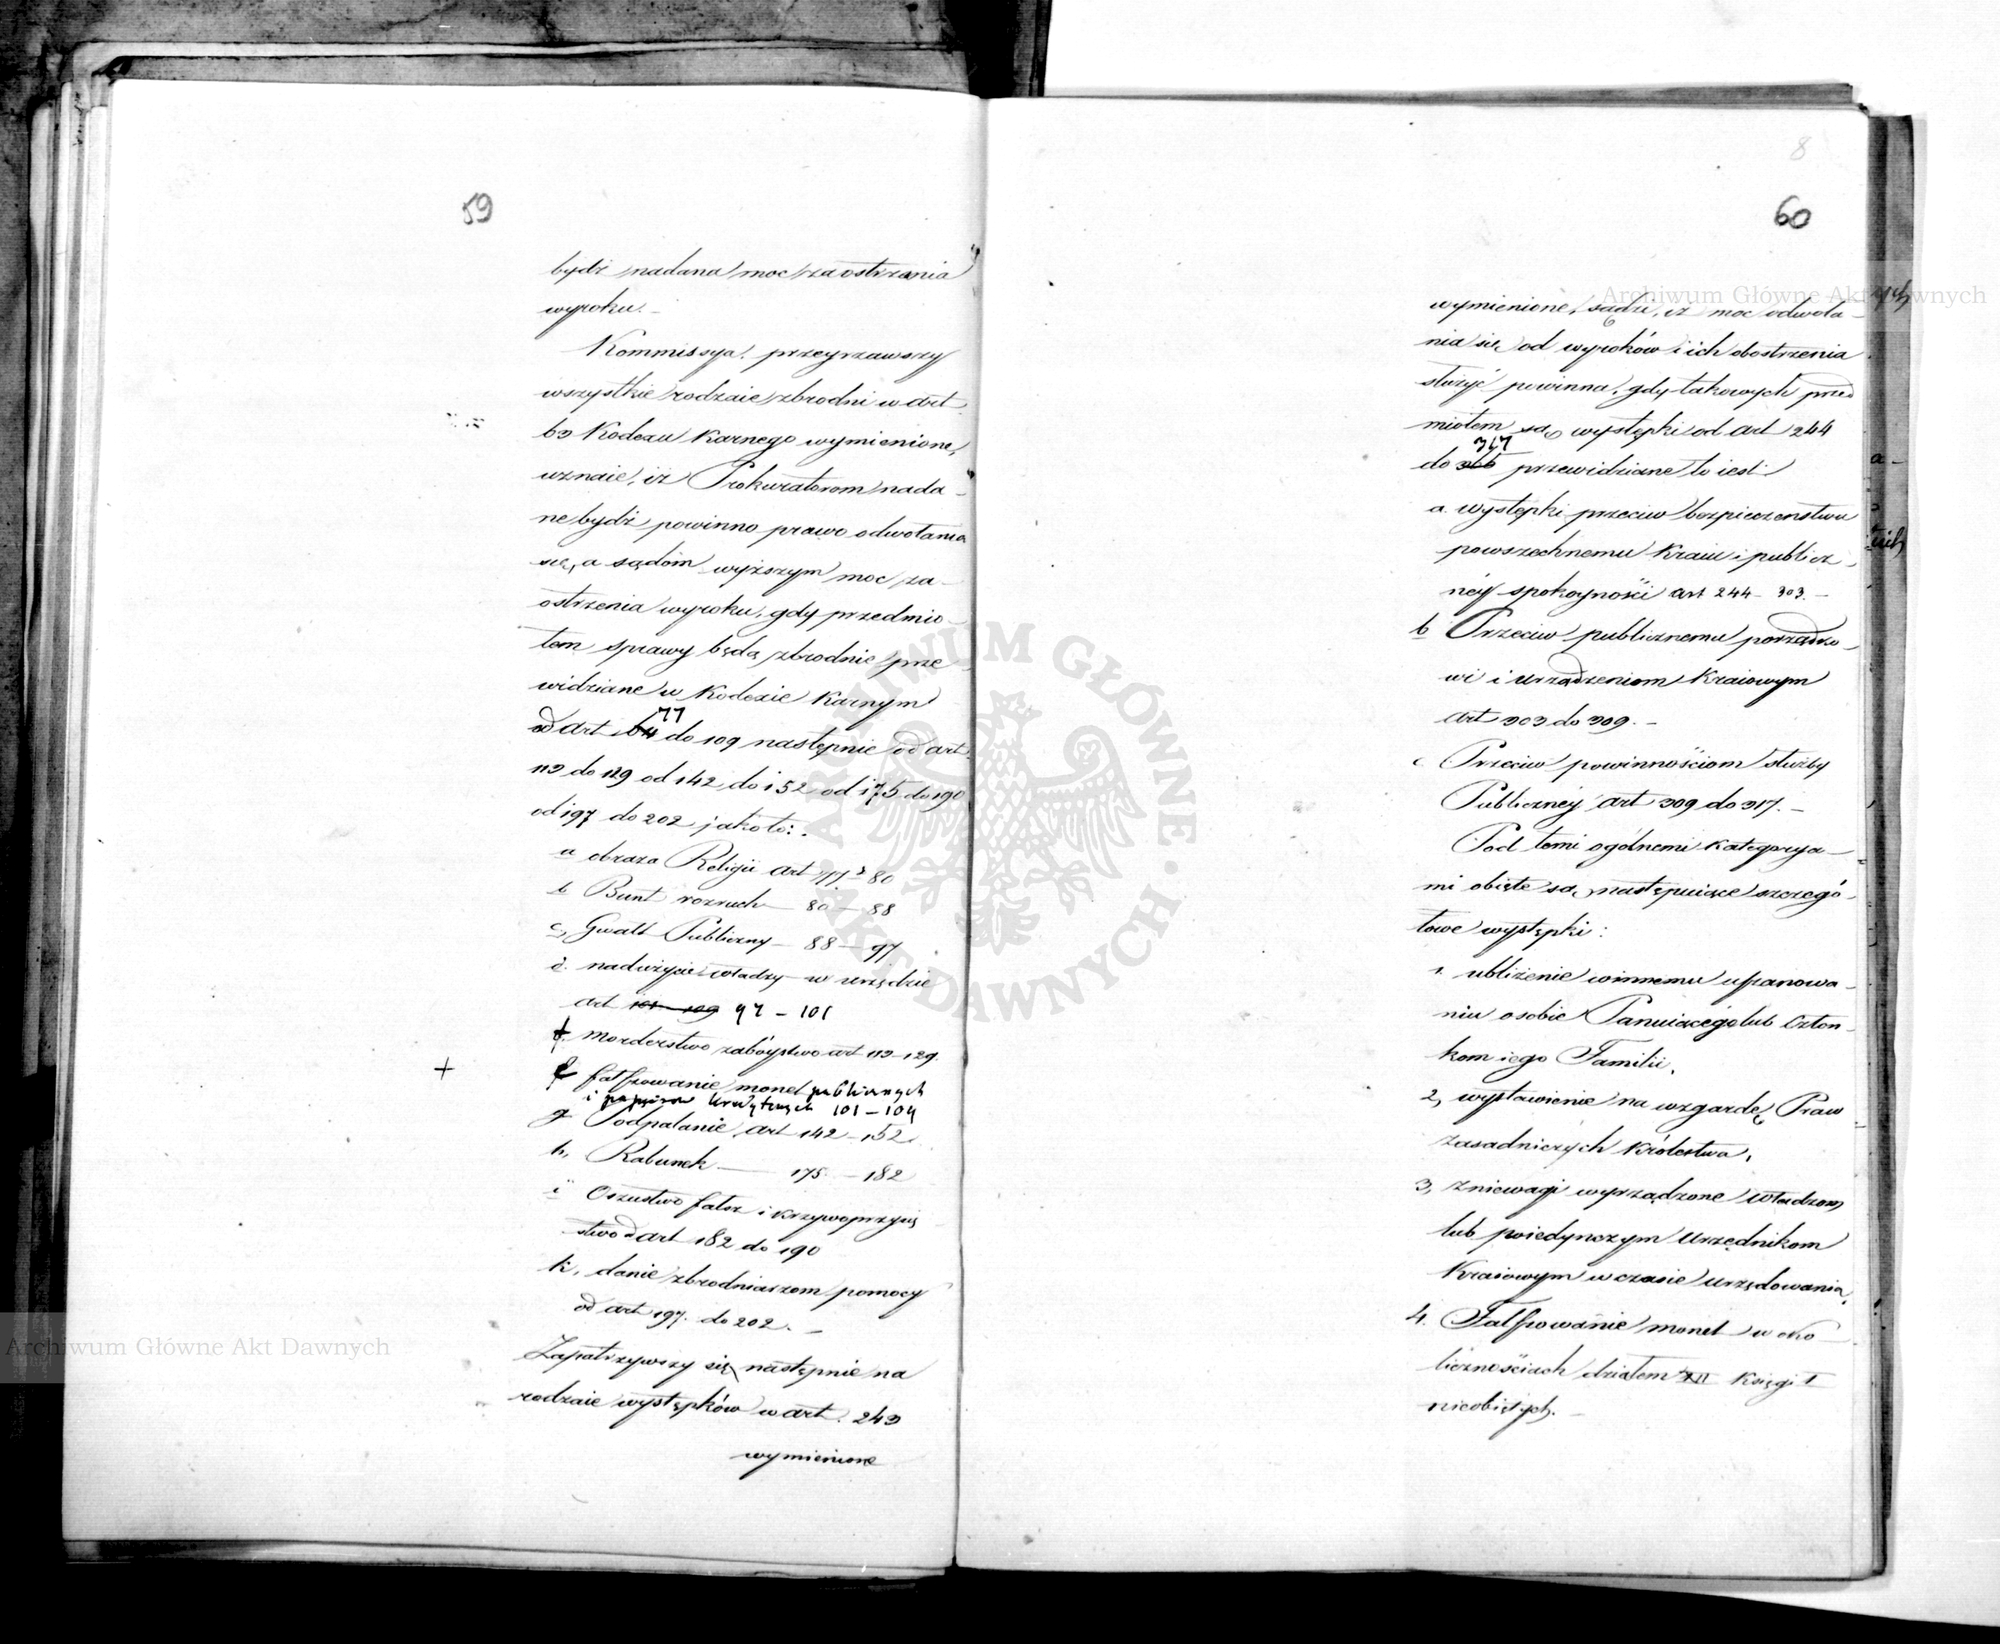 59
bydź nadana moc zaostrzania
wyroku. –
Kommissya, przeyrzawszy
wszystkie rodzaie zbrodni w art
63 Kodexu Karnego wymienione,
uznaie, iż Prokuratorom nada-
ne bydź powinno prawo odwołania
się, a sądóm wyższym moc za-
ostrzenia wyroku, gdy przedmio-
tem sprawy będą zbrodnie prze-
widziane w Kodexie Karnym
77
od art 64 do 109 następnie od art
113 do 129 od 142 do 152 od 175 do 190
od 197 do 202 jako to:
a obraza Religii art 77 – 80
b Bunt rozruch – 80 – 88
c, Gwałt Publiczny – 88 – 97
d. nadużycie władzy w urzędzie
art 101–109 97 – 101
f morderstwo zabóystwo art 113–129.
+ e fałszowanie monet publicznych
i papierów kredytowych 101 – 109
g Podpalanie art 142 – 152
h, Rabunek — 175 – 182
i Oszustwo fałsz i krzywoprzysię
stwo od art 182 do 190
k, danie zbrodniarzom pomocy
od art 197. do 202. –
Zapatrzywszy się następnie na
rodzaie występków w art. 243
wymienione
8
60
wymienione, sądzi, iż moc odwoła-
nia się od wyroków i ich obostrzenia
służyć powinna, gdy takowych przed
miotem są występki od art 244
317
do 366 przewidziane to iest:
a występki przeciw bezpieczenstwu
powszechnemu Kraiu i publicz-
néy spokoyności art 244 – 303. –
b Przeciw publicznemu porządko-
wi i urządzeniom Kraiowym
art 303 do 309. –
c Przeciw powinnościom służby
Publicznéy art 309 do 317. –
Pod temi ogólnemi kategorya-
mi obięte są następuiące szczegó-
łowe występki:
1. ubliżenie winnemu uszanowa-
niu osobie Panuiącego lub Człon-
kom iego Familii,
2, wystawienie na wzgardę Praw
zasadniczych Królestwa,
3, zniewagi wyrządzone Władzom
lub poiedynczym Urzędnikom
Kraiowym w czasie urzędowania,
4. Fałszowanie monet w oko
licznościach działem XII Księgi I
nieobiętych. –
Archiwum Główne Akt Dawnych
Archiwum Główne Akt Dawnych
ARCHIWUM GŁÓWNE AKT DAWNYCH